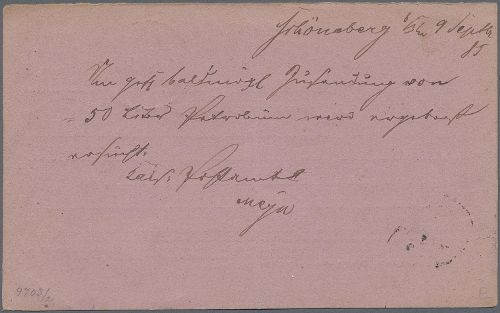 Schöneberg b/Bln 9 Septbr
85
Um gefl baldmögl Zusendung von
= 50 Liter Petroleum wird ergebenst
ersucht.
Kais. Postamt
Meyn
9703/2